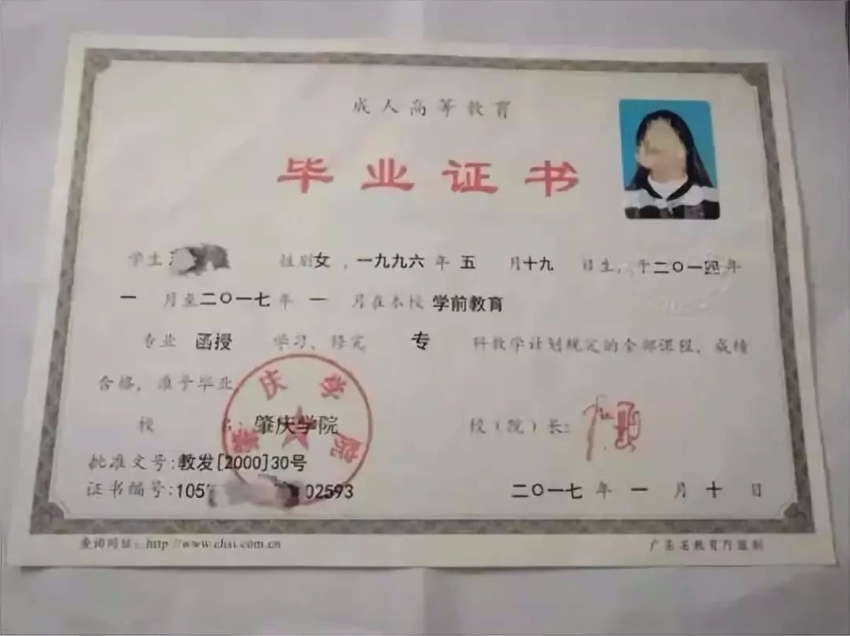 成人高等教育
毕业证书
学生 性别女，一九九六年五月十九日生，于二〇一四年
一月至二〇一七年一月在本校学前教育
专业 函授 学习、修完 专 科教学计划规定的全部课程、成绩
合格，准予毕业
校 名：肇庆学院 校（院）长：
肇庆学院
批准文号：教发[2000]30号
证书编号：105 02593 二〇一七年一月十日
查询网址：http://www.chsi.com.cn 广东省教育厅监制